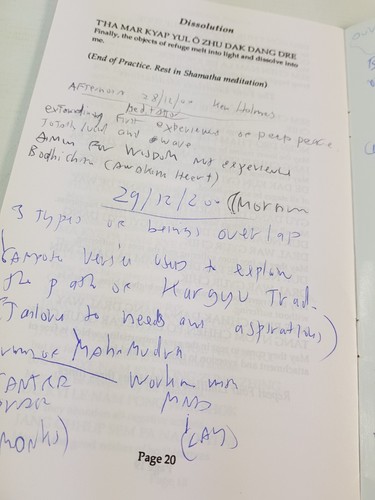 Dissolution
THA MAR KYAP YUL Ö ZHU DAK DANG DRE
Finally, the objects of refuge melt into light and dissolve into
me.
(End of Practice. Rest in Shamatha meditation)
AFTERNOON 28/12/00 Ken Holmes
first experience of deep peace
and wave
AIM FOR WISDOM not experience
Bodhichitta (Awakened Heart)
29/12/200 (Morning
3 Types of beings overlap
used to explain
the path of Kargyu Trad.
(Tailored to needs and aspirations)
of Mahamudra
TANTRA Working with
MIND
(MONKS) (LAY)
Page 20